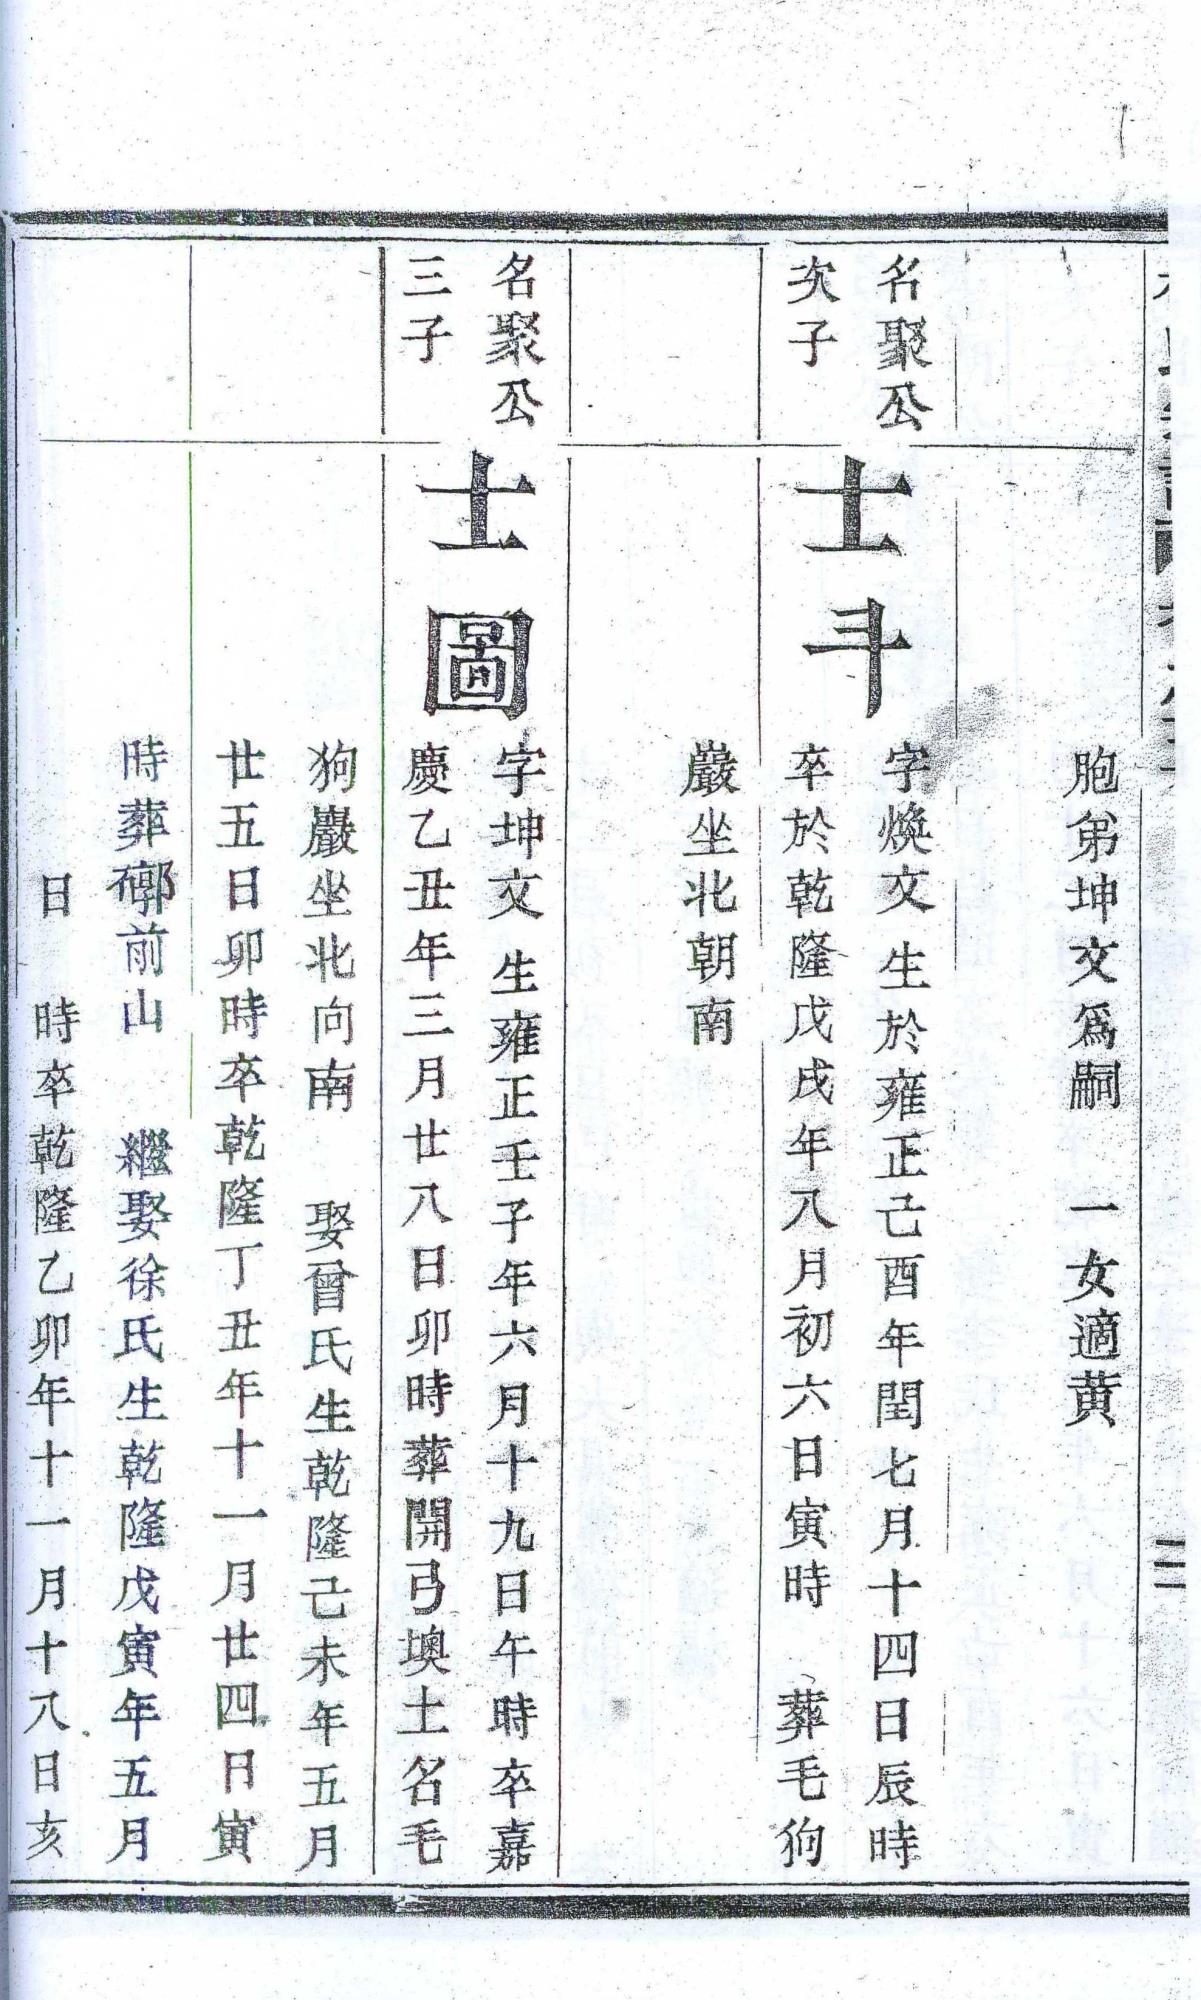 胞弟坤文爲嗣　一女適黃
名聚公
次子
士斗
字煥文　生於雍正己酉年閏七月十四日辰時
卒於乾隆戊戌年八月初六日寅時　葬毛狗
巖坐北朝南
名聚公
三子
士圖
字坤文　生雍正壬子年六月十九日午時卒嘉
慶乙丑年三月廿八日卯時葬開弓墺土名毛
狗巖坐北向南　娶曾氏生乾隆己未年五月
廿五日卯時卒乾隆丁丑年十一月廿四日寅
時葬𨻶前山　繼娶徐氏生乾隆戊寅年五月
日　時卒乾隆乙卯年十一月十八日亥